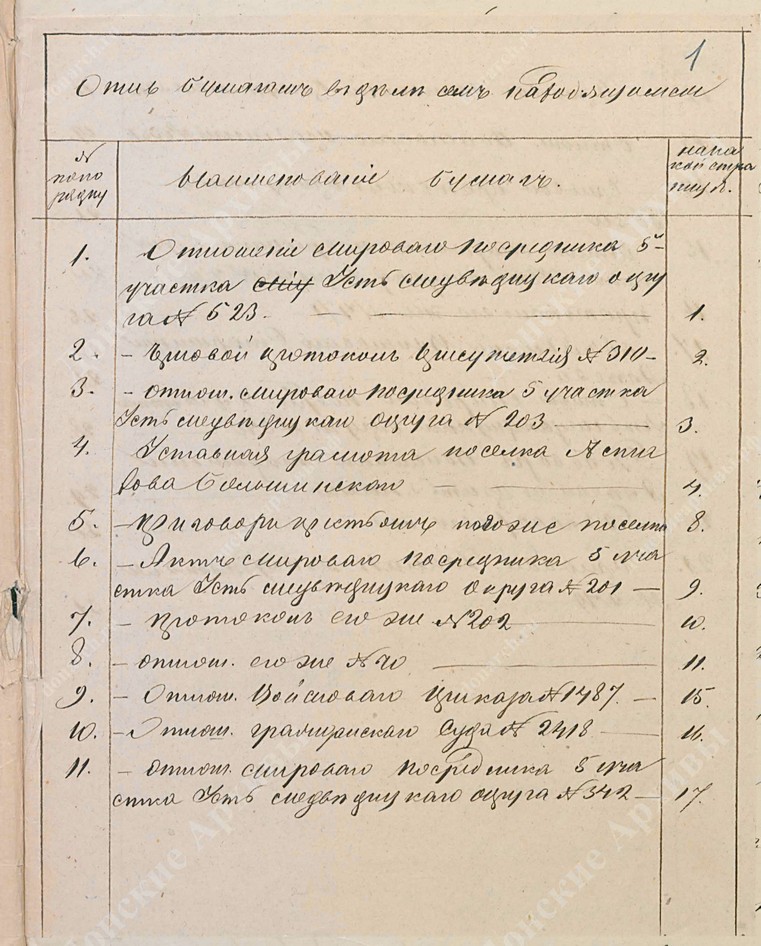 1
Опись бумагамъ въ дѣлѣ семъ находящимся
№ по порядку
Наименованіе бумагъ.
на какой страницѣ.
1. Отношеніе мироваго посредника 5-
участка Усть медвѣдицкаго окру
га № 523. — 1.
2. – войсковой протоколъ № 310 – 2.
3. – отнош. мироваго посредника 5 участка
Усть медвѣдицкаго округа № 203 — 3.
4. Уставная грамота поселка
Большинской — 4.
5. – Приговоръ крестьянъ поселка 8.
6. – Актъ мироваго посредника 5 уча
стка Усть медвѣдицкаго округа № 201 – 9.
7. – протоколъ его же № 202 — 10.
8. – отнош. его же № 40 — 11.
9. – Отнош. Войсковаго Приказа № 1487. – 15.
10. – Отнош. гражданскаго Суда № 2418 — 16.
11. – отнош. мироваго посредника 5 уча
стка Усть медвѣдицкаго округа № 342 – 17.
Донские Архивы